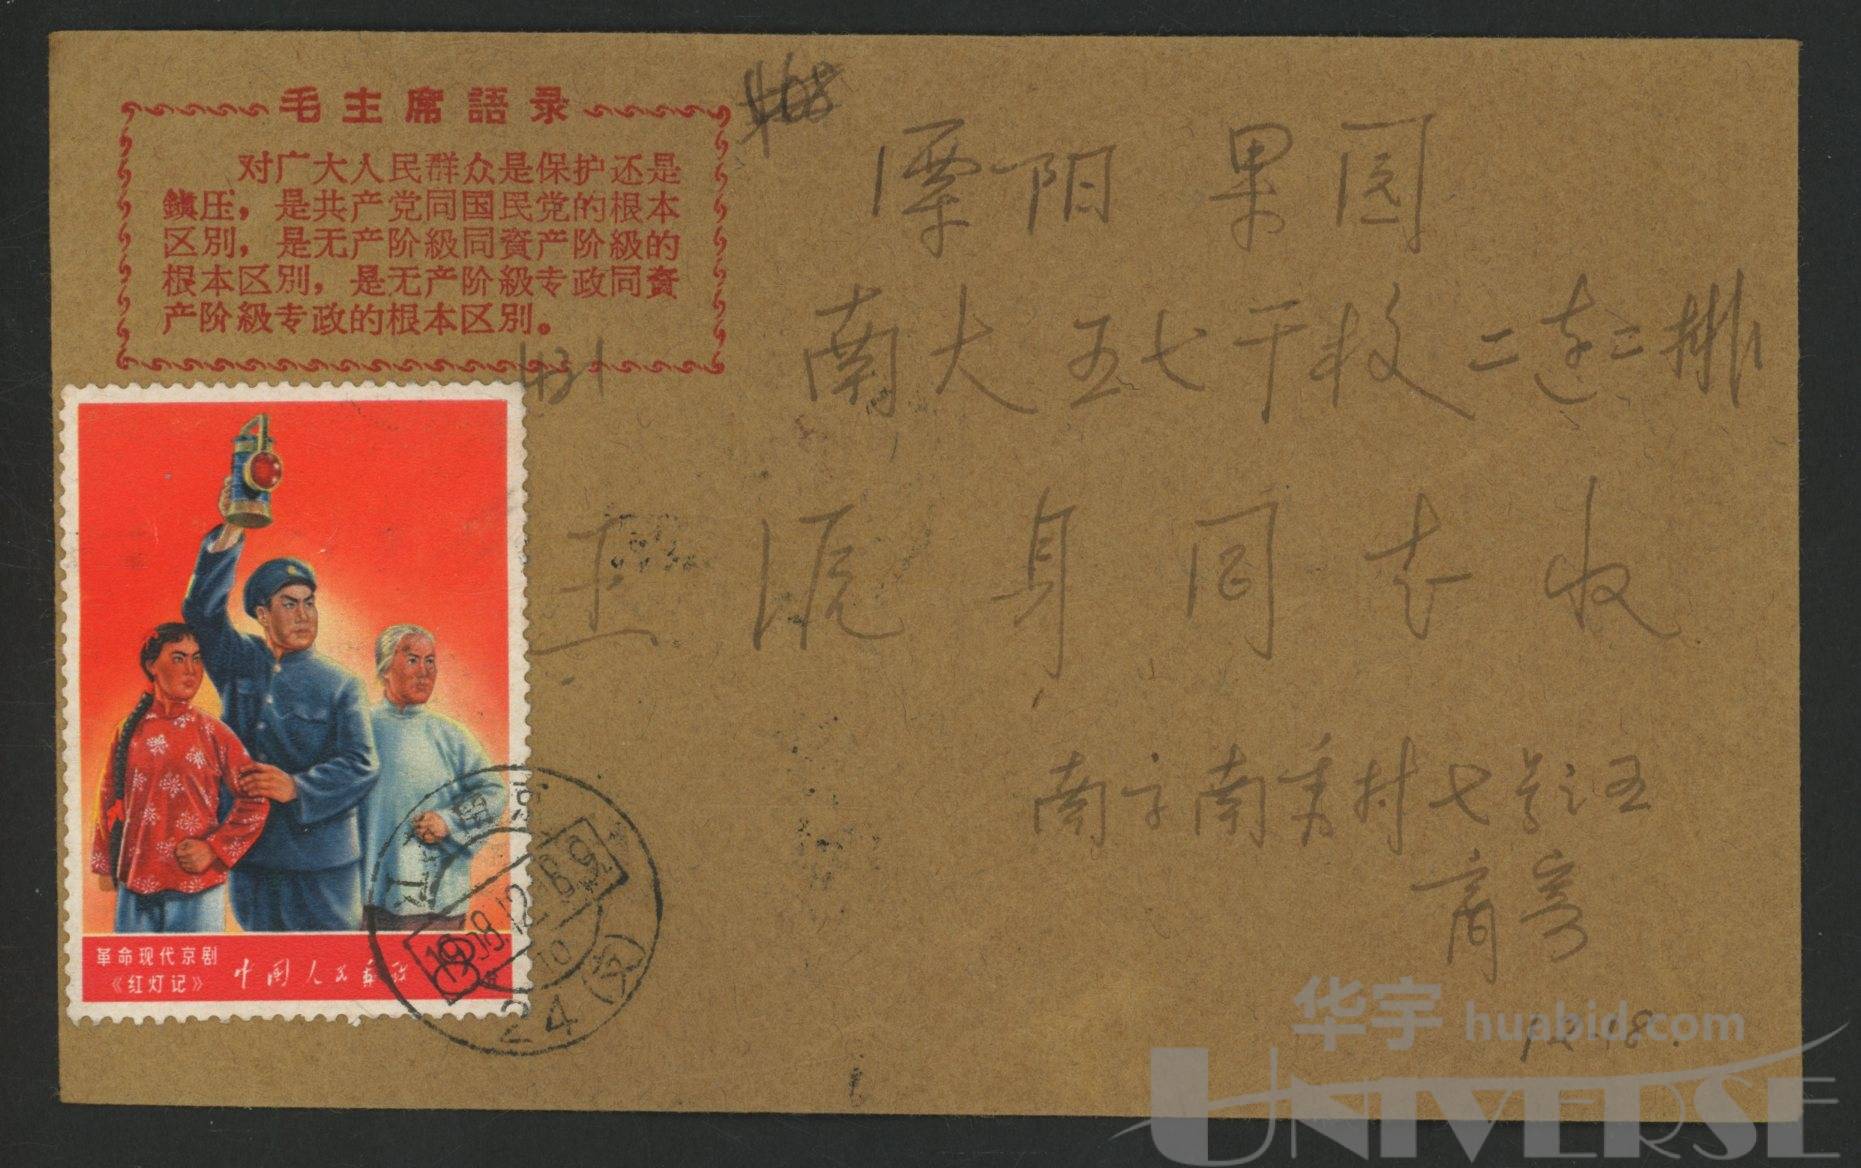 毛主席語录
对广大人民群众是保护还是
鎮压，是共产党同国民党的根本
区别，是无产阶級同資产阶級的
根本区别，是无产阶級专政同資
产阶級专政的根本区别。
溧阳果园
南大五七干校二连二排
王 身同志收
南京南秀村七号汪
寄
12.18.
431
革命现代京剧
《红灯记》
中国人民邮政
江苏南京
24(支)
华宇 huabid.com
UNIVERSE